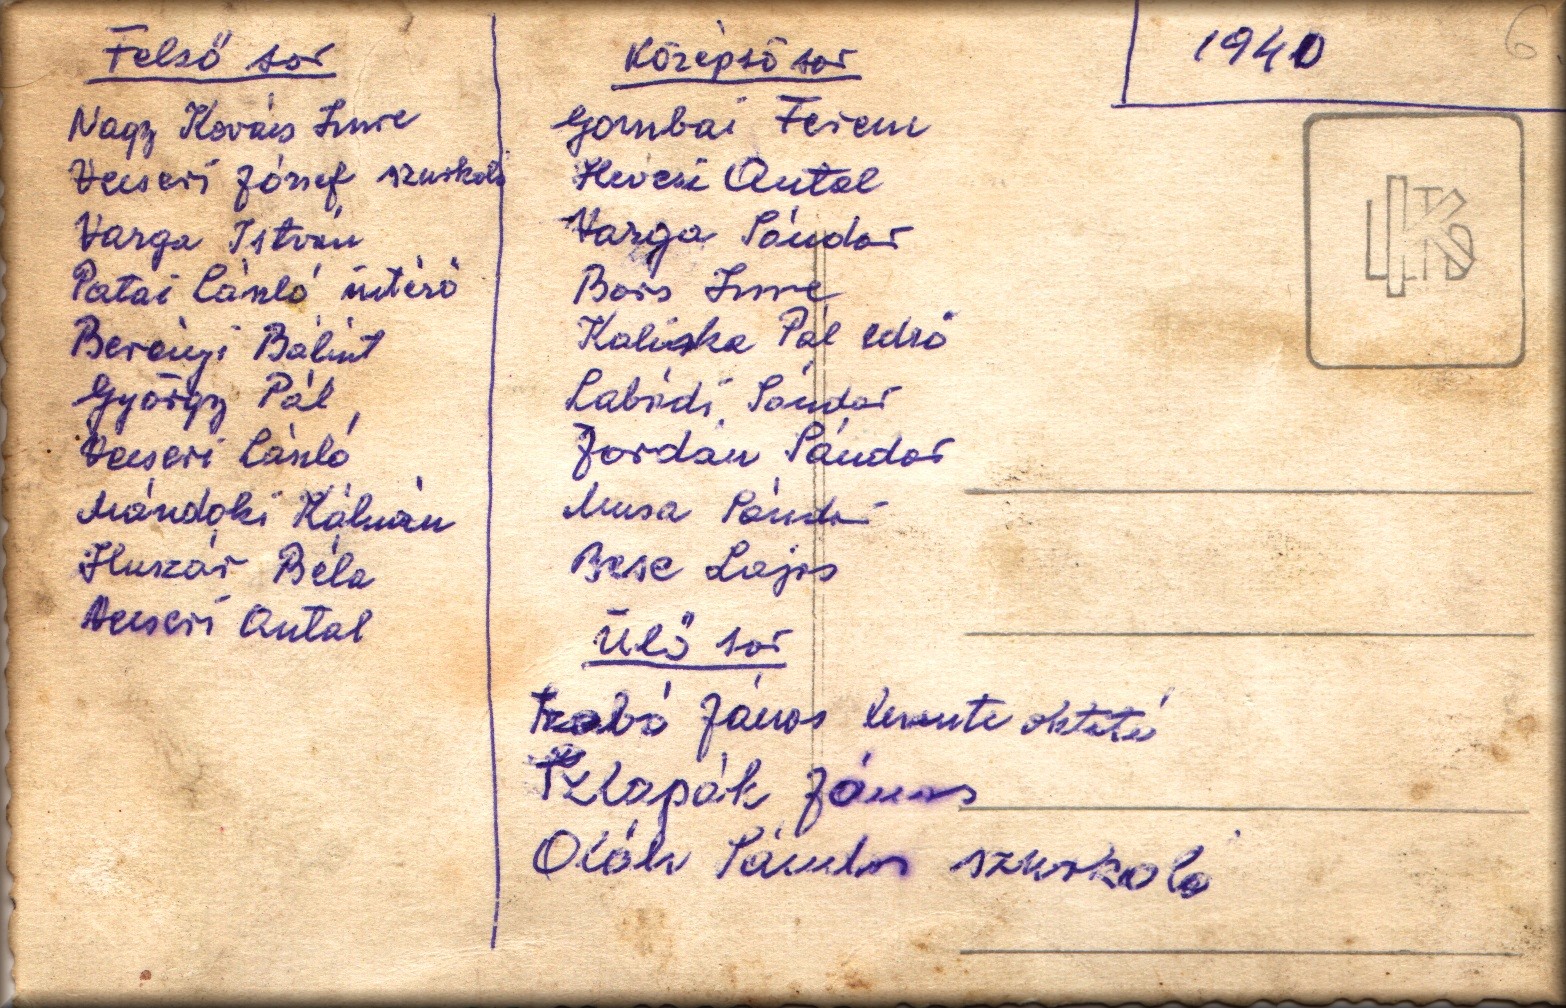 Felső sor
Nagy Kovács Imre
Vecseri József szurkoló
Varga István
Patai László intéző
Berényi Bálint
György Pál
Vecseri László
Mándoki Kálmán
Huszár Béla
Vecseri Antal
Középső sor
Gombai Ferenc
Hevesi Antal
Varga Sándor
Bors Imre
Kaliska Pál edző
Labádi Sándor
Jordán Sándor
Musa Sándor
Bese Lajos
Ülő sor
Szabó János levente oktató
Szlapák János
Oláh Sándor szurkoló
1940
6